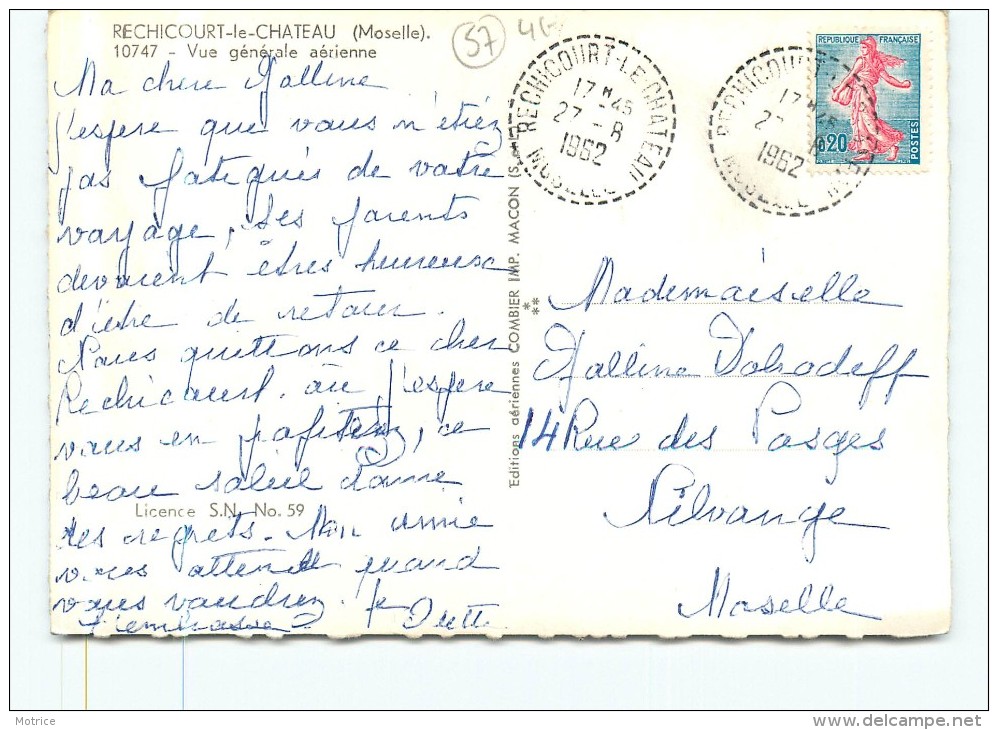 RECHICOURT-le-CHATEAU (Moselle).
10747 - Vue générale aérienne
57
Ma chère Halline
J'espère que vous n'étiez
pas fatigués de votre
voyage, Les parents
devaient êtres heureux
d'être de retour.
Nous quittons ce cher
Rechicourt. où J'espère
vous en profitez, ce
beau soleil donne
des regrets. Mon amie
vous attend quand
vous voudrez. Je
t'embrasse
Licence S.N. No. 59
Editions aériennes COMBIER IMP. MACON (S.-et-L.)
RECHICOURT-LE-CHATEAU
17 H 45
27 - 8
1962
MOSELLE
RECHICOURT-LE-CHATEAU
17 H 45
1962
MOSELLE
REPUBLIQUE FRANÇAISE
0,20
POSTES
Mademoiselle
Halline Dobrodeff
14 Rue des Vosges
Vilvange
Moselle
Motrice
delcampe.net